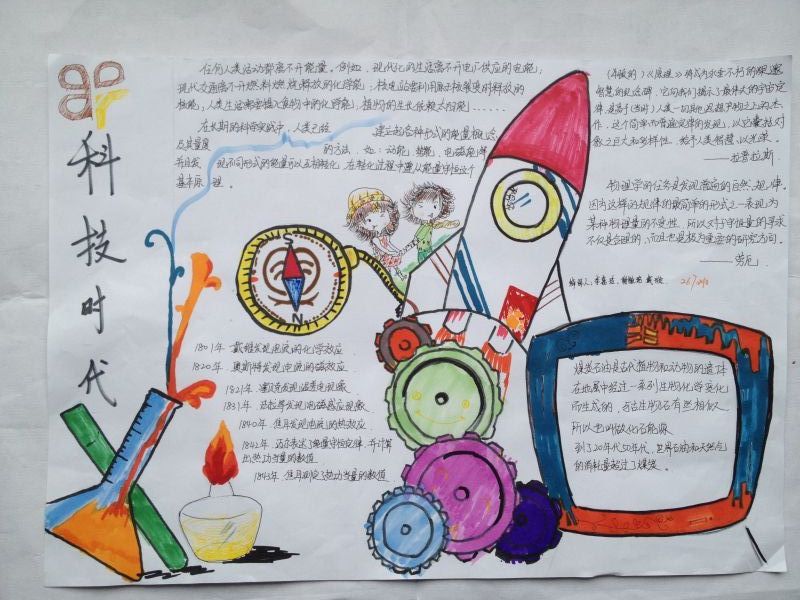 科技时代
任何人类活动都离不开能量。例如，现代化的生活离不开电厂供应的电能；
现代交通离不开燃料燃烧释放的化学能；核电站要利用原子核裂变时释放的
核能；人类生活需要摄入食物中的化学能；植物的生长依赖太阳能……
在长期的科学实践中，人类已经 建立起各种形式的能量概念
及其量度 的方法，如：动能、势能、电磁能等
并且发 现不同形式的能量可以互相转化，在转化过程中遵从能量守恒这个
基本原 理。
智慧的纪念碑，它向我们揭示了最伟大的宇宙定
作，这个简单而普遍定律的发现，以它囊括对
象之巨大和多样性，给予人类智慧以光荣。
——拉普拉斯。
物理学的任务是发现普遍的自然规律。
因为这样的规律的最简单的形式之一表现为
某种物理量的不变性，所以对于守恒量的寻求
不仅是合理的，而且也是极为重要的研究方向。
——劳厄。
S
N
1801年 戴维发现电流的化学效应
1820年 奥斯特发现电流的磁效应
1821年 塞贝克发现温差电现象
1831年 法拉第发现电磁感应现象
1840年 焦耳发现电流的热效应
1842年 迈尔表述了能量守恒定律，并计算
出热功当量的数值
1843年 焦耳测定了热功当量的数值
煤炭石油是古代植物和动物的遗体
在地层中经过一系列生物化学变化
而生成的，与古生物化石有些相似
所以也叫做化石能源
到了20年代50年代，世界石油和天然气
的消耗量超过了煤炭。